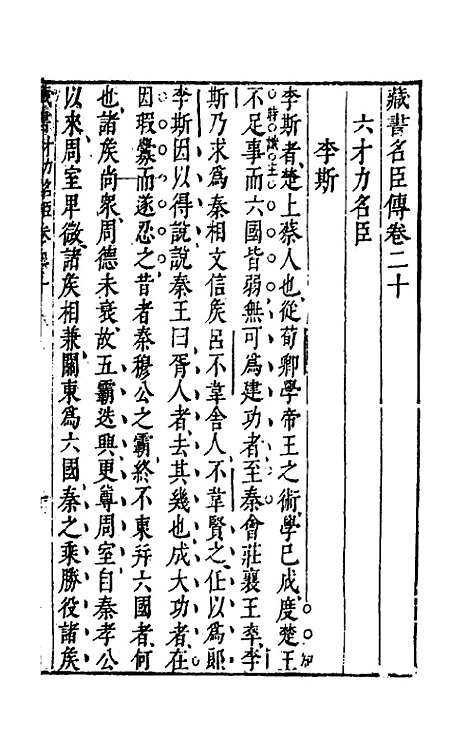 藏書名臣傳卷二十
六才力名臣
李斯
李斯者楚上蔡人也從荀卿學帝王之術學已成度楚王
不足事而六國皆弱無可為建功者至秦會莊襄王卒李
斯乃求為秦相文信矦呂不韋舍人不韋賢之任以為郎
李斯因以得說說秦王曰胥人者去其幾也成大功者在
因瑕釁而遂忍之昔者秦穆公之霸終不東并六國者何
也諸矦尚衆周德未衰故五霸迭興更尊周室自秦孝公
以來周室卑微諸矦相兼關東為六國秦之乘勝役諸矦